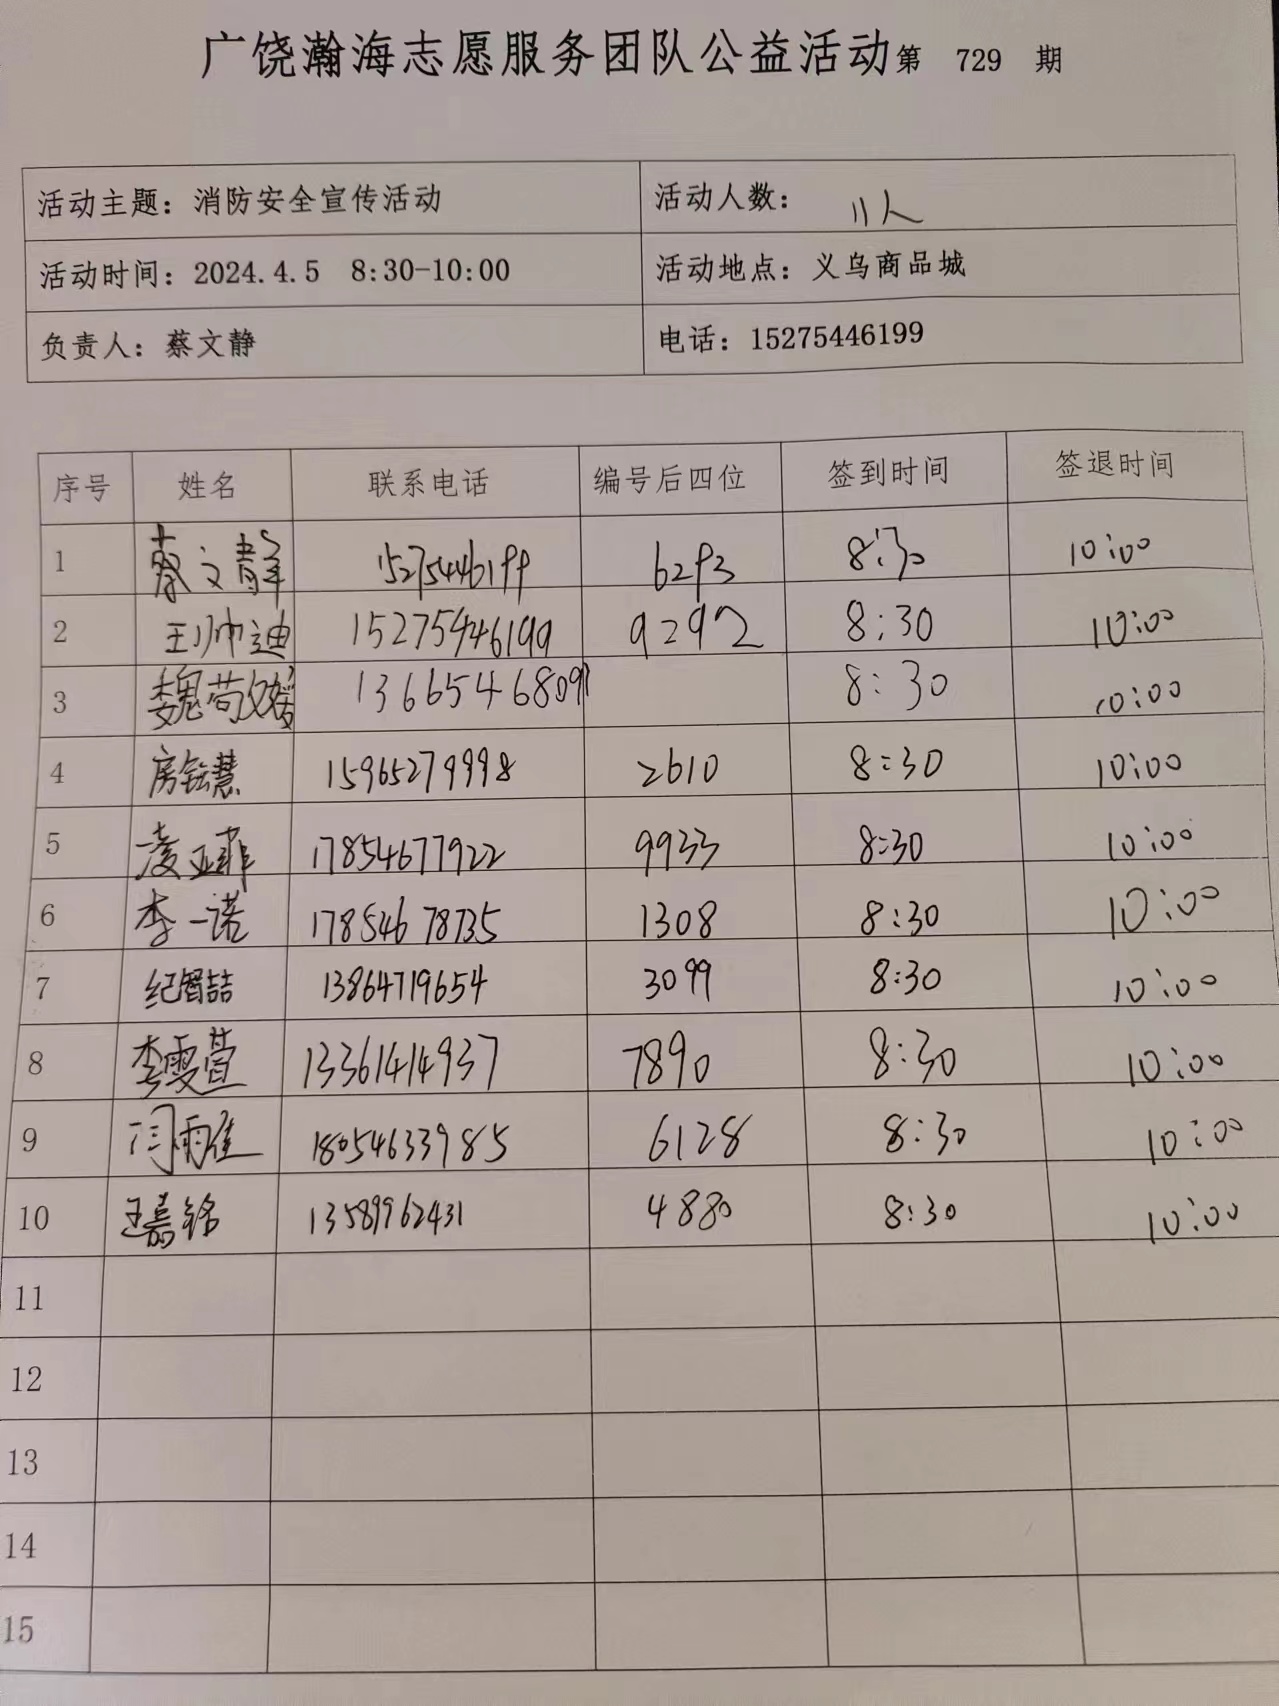 广饶瀚海志愿服务团队公益活动第 729 期
活动主题：消防安全宣传活动 活动人数： 11人
活动时间：2024.4.5 8:30-10:00 活动地点：义乌商品城
负责人：蔡文静 电话：15275446199
序号 姓名 联系电话 编号后四位 签到时间 签退时间
1 蔡文静 15275446199 6293 8:30 10:00
2 王帅迪 15275446199 9292 8:30 10:00
3 魏苟媛 13665468091 8:30 10:00
4 房钰慧 15965279998 2610 8:30 10:00
5 凌亚菲 17854677922 9933 8:30 10:00
6 李一诺 17854678735 1308 8:30 10:00
7 纪智喆 13864719654 3099 8:30 10:00
8 李雯萱 13361414937 7890 8:30 10:00
9 闫雨佳 18054633985 6128 8:30 10:00
10 王嘉铭 13589962431 4880 8:30 10:00
11
12
13
14
15